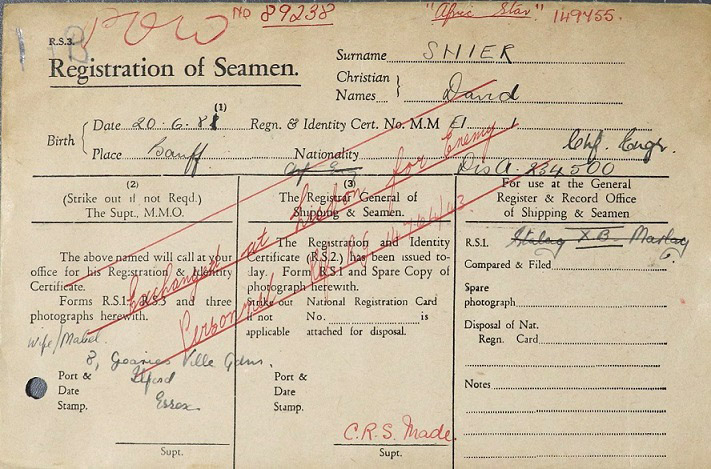 POW No 89238 "Afric Star." 149455.
R.S.3.
Registration of Seamen.
Surname SHIER
Christian Names } David
(1)
Birth { Date 20.6.81 Regn. & Identity Cert. No. M.M E1 1
Place Banff Nationality
Chf. Engr.
Dis A. 234500
(2)
(Strike out if not Reqd.)
The Supt., M.M.O.
The above named will call at your
office for his Registration & Identity
Certificate.
Forms R.S.1 R.S.3 and three
photographs herewith.
Wife/Mabel.
8, Ville Gdns.
Ilford
Essex
Port &
Date
Stamp.
Supt.
(3)
The Registrar General of
Shipping & Seamen.
The Registration and Identity
Certificate (R.S.2.) has been issued to-
day. Form R.S.1 and Spare Copy of
photograph herewith.
Strike out if not applicable National Registration Card
No. is
attached for disposal.
Port &
Date
Stamp.
C.R.S. Made.
Supt.
For use at the General
Register & Record Office
of Shipping & Seamen
R.S.1. Stalag X.B. Marlag
Compared & Filed
Spare
photograph
Disposal of Nat.
Regn. Card
Notes
Exchanged at Lisbon for Enemy
Personnel